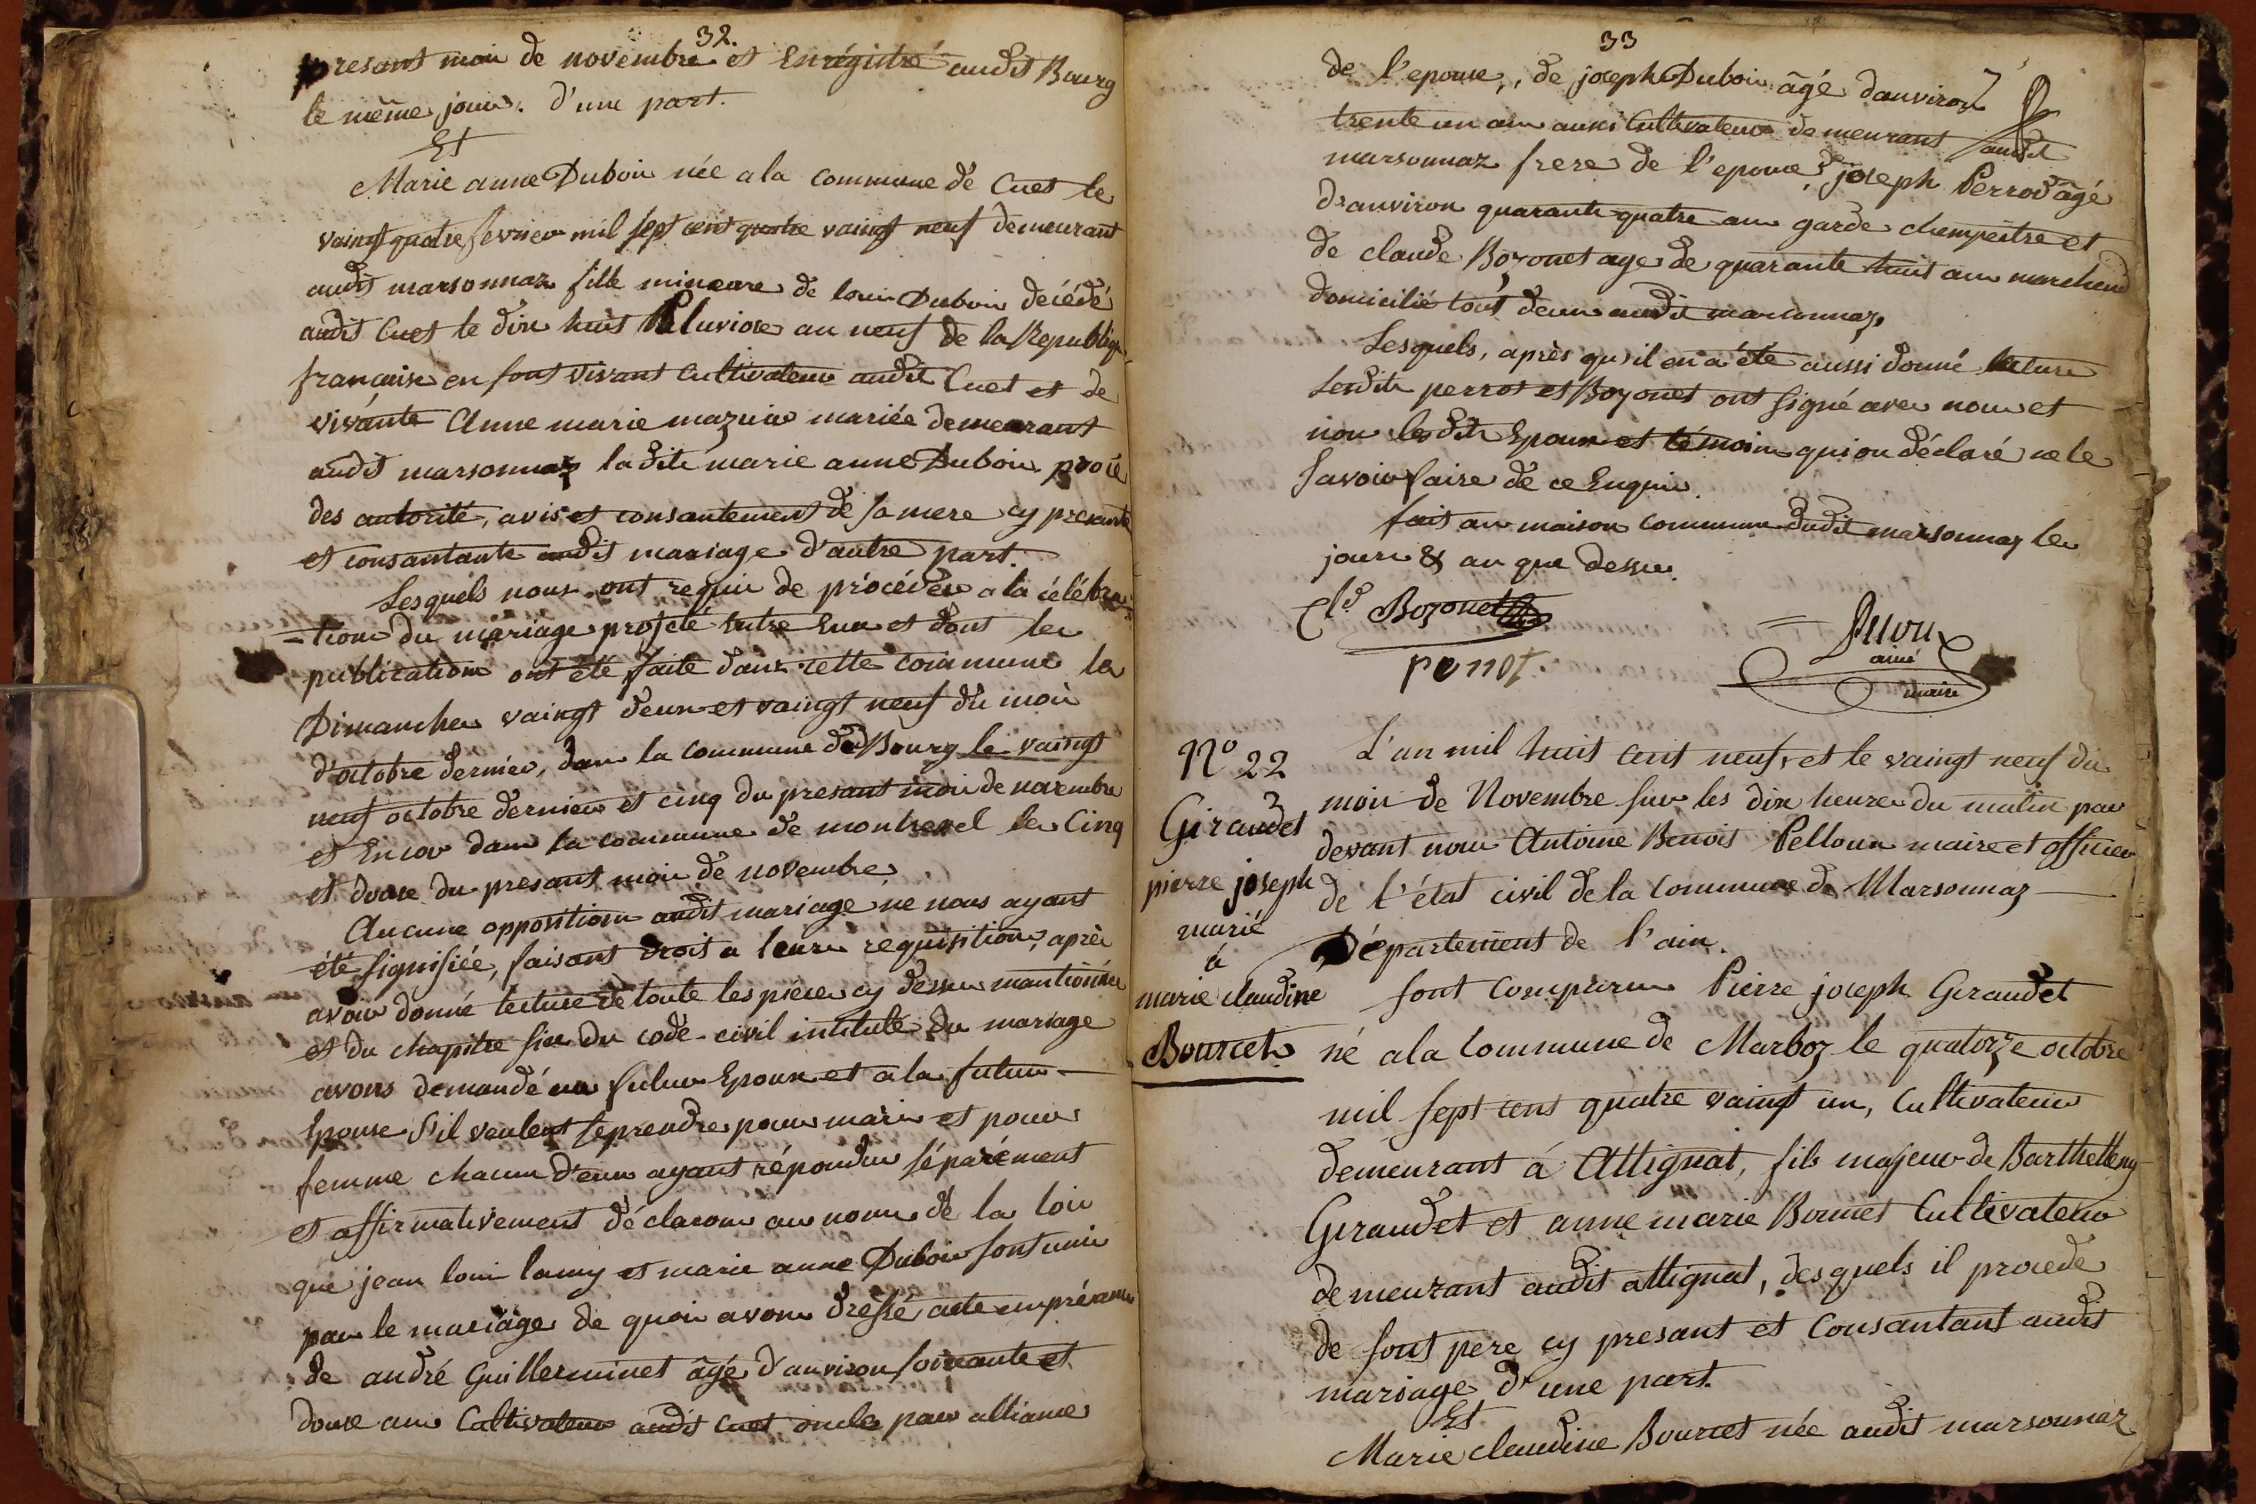 32.
presant moi de novembre et Enrégistré audit Bourg
le même jour. d'une part.
Et
Marie anne Duboin née a la commune de Cuet le
vaingt quatre fevrier mil sept cent quatre vaingt neuf demeurant
audit marsonnaz fille mineure de louis Duboin décédé
audit Cuet le dix huit Pluviose an neuf de la Republiq
francaise en sont vivant cultivateur audit Cuet et de
vivante Anne marie mazuir mariée demeurant
audit marsonnaz ladite marie anne Duboin procé
des autorité, avis et consantement de sa mere cy presante
et consantante audit mariage d'autre part.
Lesquels nous ont requis de procéder a la célébra
-tion du mariage projeté Entre Eux et dont les
publication ont été faite dans cette commune les
Dimanches vaingt deux et vaingt neuf du mois
d'octobre dernier, dans la commune de Bourg le vaingt
neuf octobre dernier et cinq du presant mois de novembre
et Encor dans la commune de montrevel les Cinq
et douze du presant mois de novembre.
Aucune opposition audit mariage ne nous ayant
été signifiée, faisant droit a leurs réquisition, après
avoir donné lecture de toute les pièces cy dessus mantionnée
et du chapitre six du code civil intitulé du mariage
avons demandé au futur Epoux et a la future
Epouse s'il veulent se prendre pour mari et pour
femme chacun d'eux ayant répondu séparément
et affirmativement déclarons au nom de la loi
que jean loui lamy et marie anne Duboin sont unis
par le mariage de quoi avons dressé acte en présence
de andré Guillerminet âgé d'anviron soixante et
douze ans Cultivateur audit Cuet oncle par alliance
33
de l'epouse,, de joseph Duboin âgé danviron
trente un ans aussi Cultivateur demeurant audit
marsonnaz frere de l'epouse, joseph Perrod âgé
d'anviron quarante quatre ans garde champêtre et
de claude Bozonet age de quarante huit ans marchend
domicilié tous deux audit marsonnaz,
Lesquels, après qu'il en a été aussi donné lecture
Lesdits perrot et Bozonet ont signé avec nous et
non lesdits Epoux et témoins qui on déclaré ne le
savoir faire de ce Enquis.
fait an maison commune dudit marsonnaz les
jours & an que dessus.
Cld Bozonet
perrot.
ainé
maire
No 22
Giraudet
pierre joseph
marié
à
marie claudine
Bourcet
L'an mil huit cent neuf, et le vaingt neuf du
mois de Novembre sur les dix heures du matin par
devant nous Antoine Benois Pelloux maire et officier
de l'état civil de la commune de Marsonnaz
Département de l'ain.
sont Comparus Pierre joseph Geraudet
né a la Commune de Marboz le quatorze octobre
mil sept cent quatre vaingt un, Cultivateur
demeurant á Attignat, fils majeur de Barthellemy
Geraudet et anne marie Bonnet Cultivateur
demeurant audit attignat, desquels il procede
de sont pere cy presant et Consantant audit
mariage d'une part.
Et
Marie claudine Bourcet née audit marsonnaz